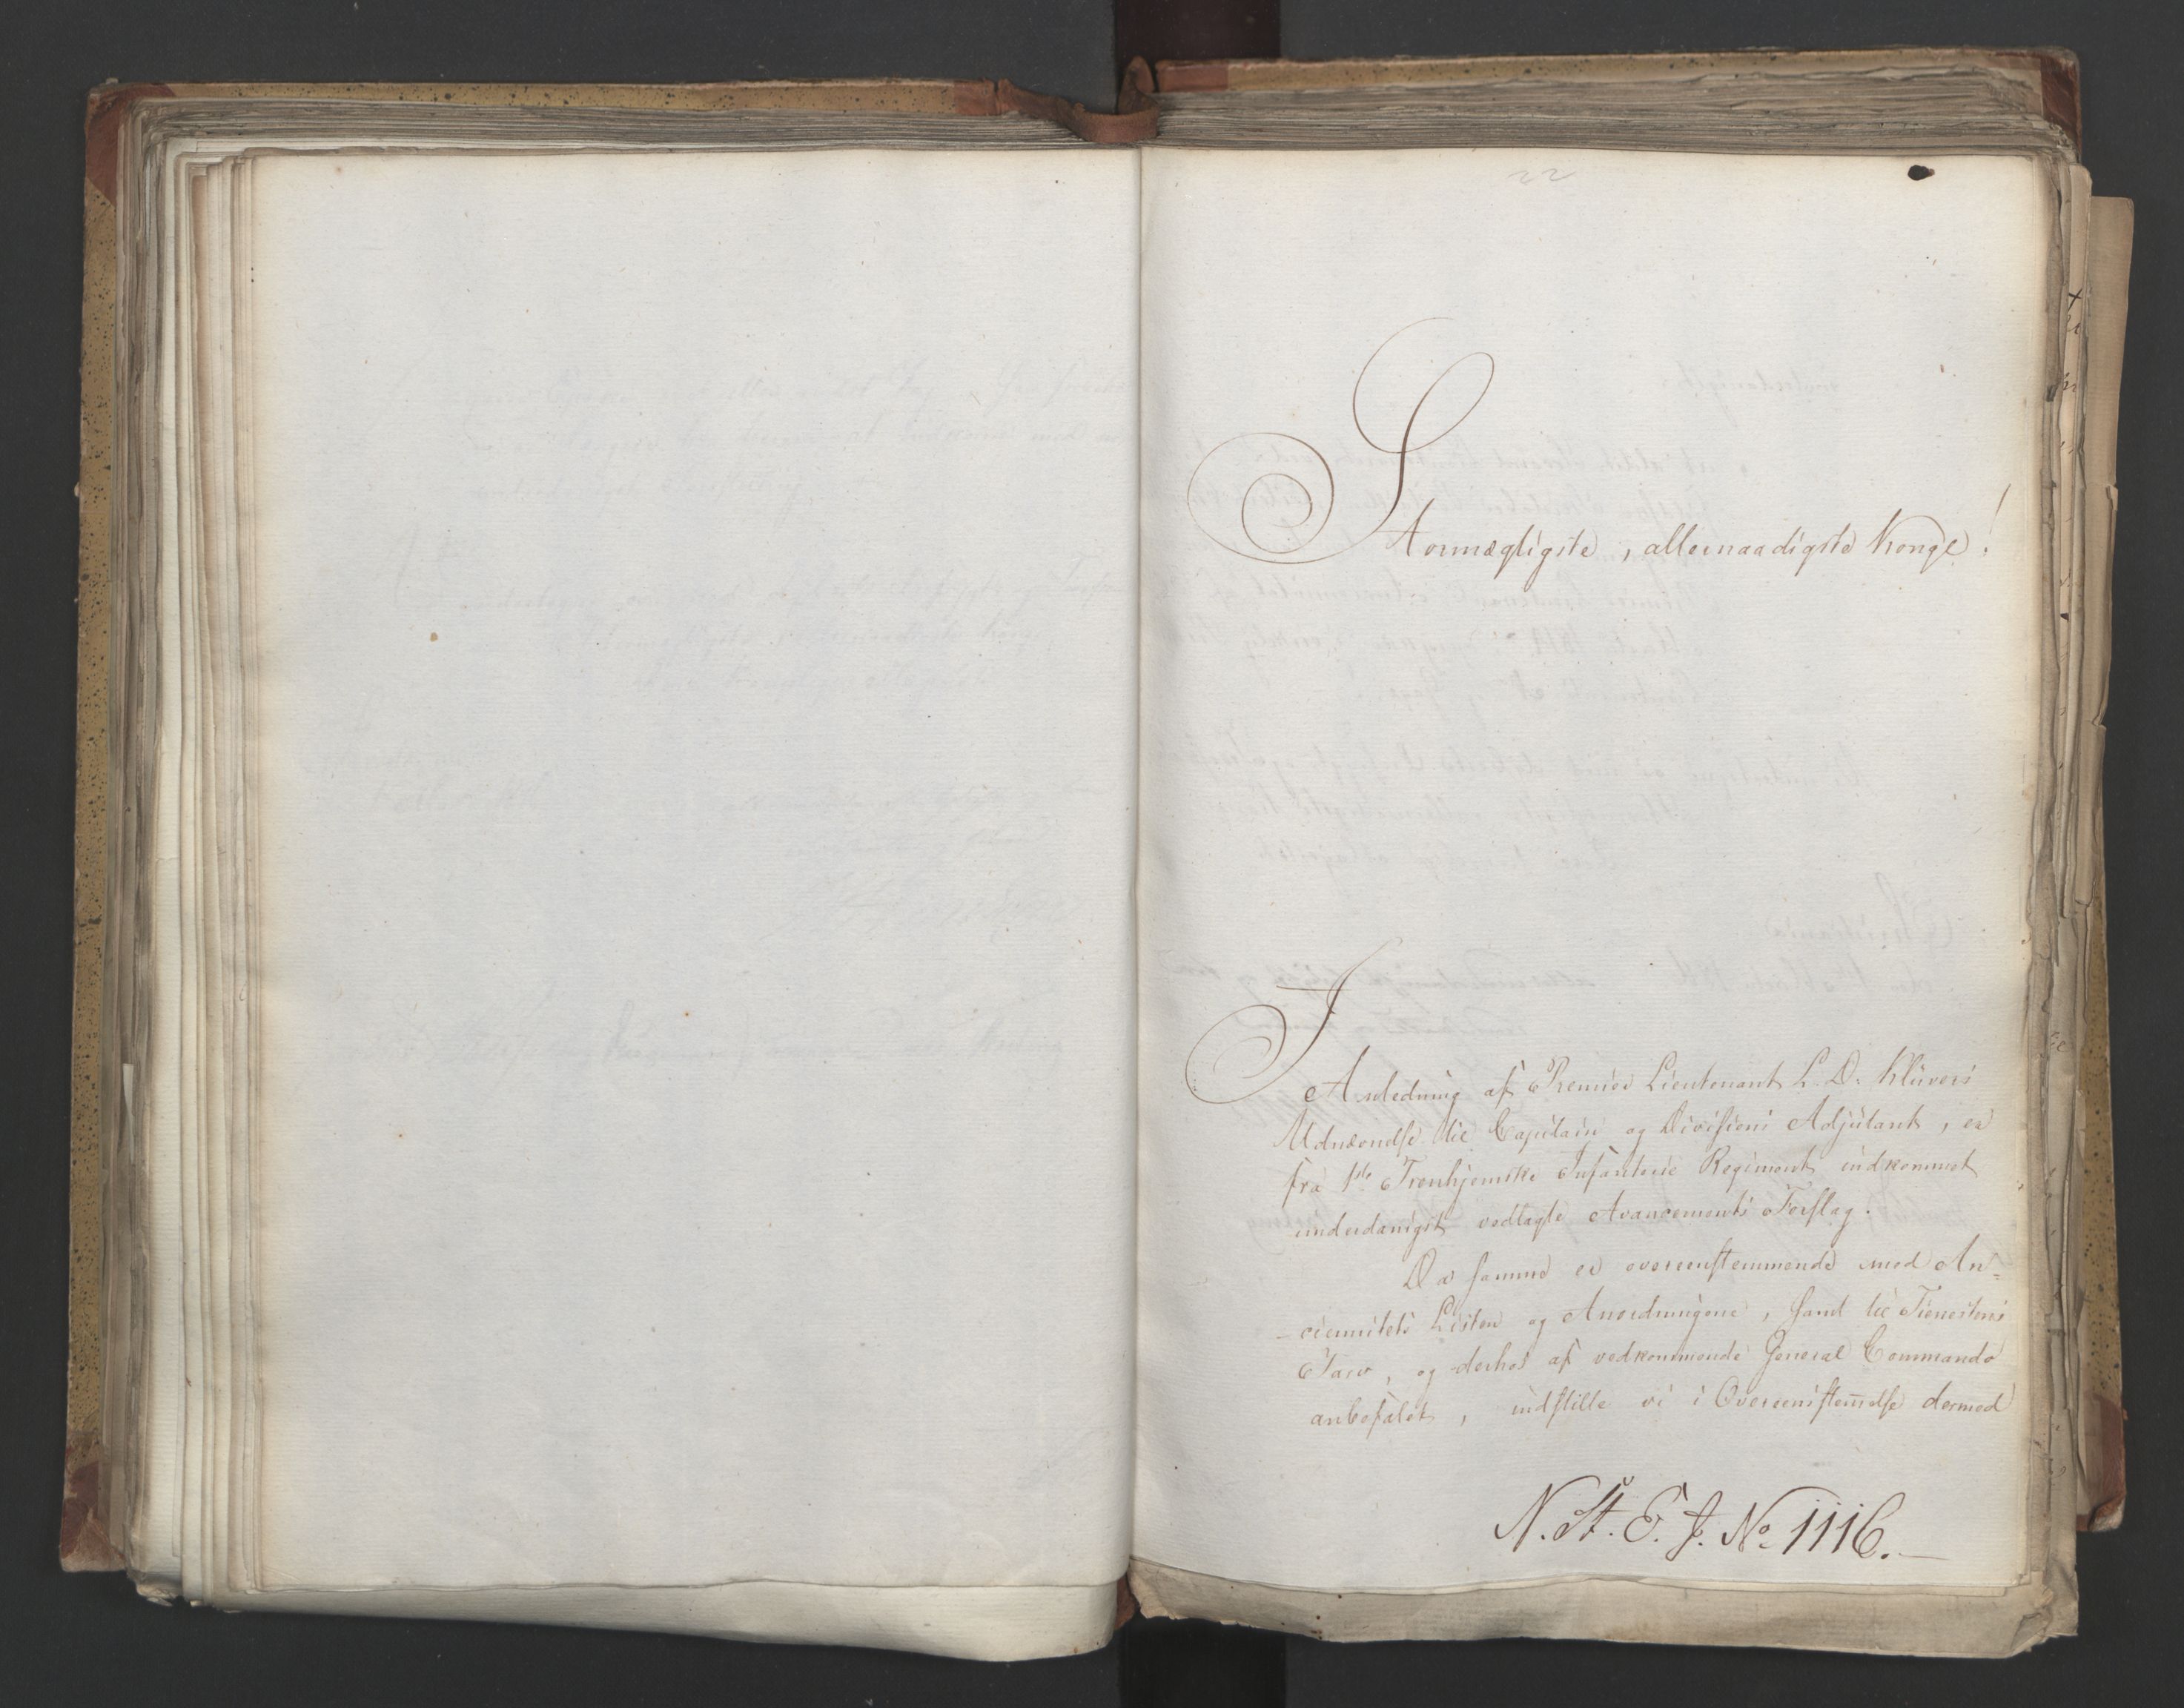 22
Stormægtigste, allernaadigste Konge!
I
Anledning af Premier Lieutenant L. D. Klüvers
Udnævnelse til Capitain og Divisions Adjutant, er
fra 1ste Tronhjemske Infanterie Regiment indkommet
underdanigst vedlagte Avancements Forslag.
Da samme er overeenstemmende med An=
-ciennitets Listen og Anordningene, samt til Tienestens
Tarv, og derhos af vedkommende General Commando
anbefalet, indstille vi i Overeenstem̅else dermed
N. St. E. J. No 1116.